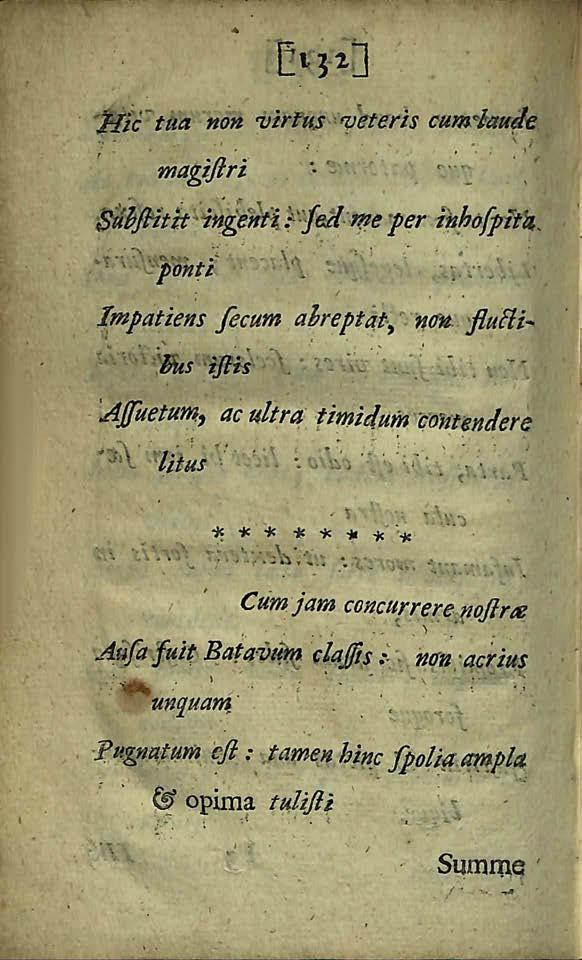 [132]
Hic tua non virtus veteris cum laude
magiſtri
Subſtitit ingenti: ſed me per inhoſpita
ponti
Impatiens ſecum abreptat, non flucti-
bus iſtis
Aſſuetum, ac ultra timidum contendere
litus
* * * * * * * *
Cum jam concurrere noſtræ
Auſa fuit Batavum claſſis: non acrius
unquam
Pugnatum eſt: tamen hinc ſpolia ampla
& opima tuliſti
Summe